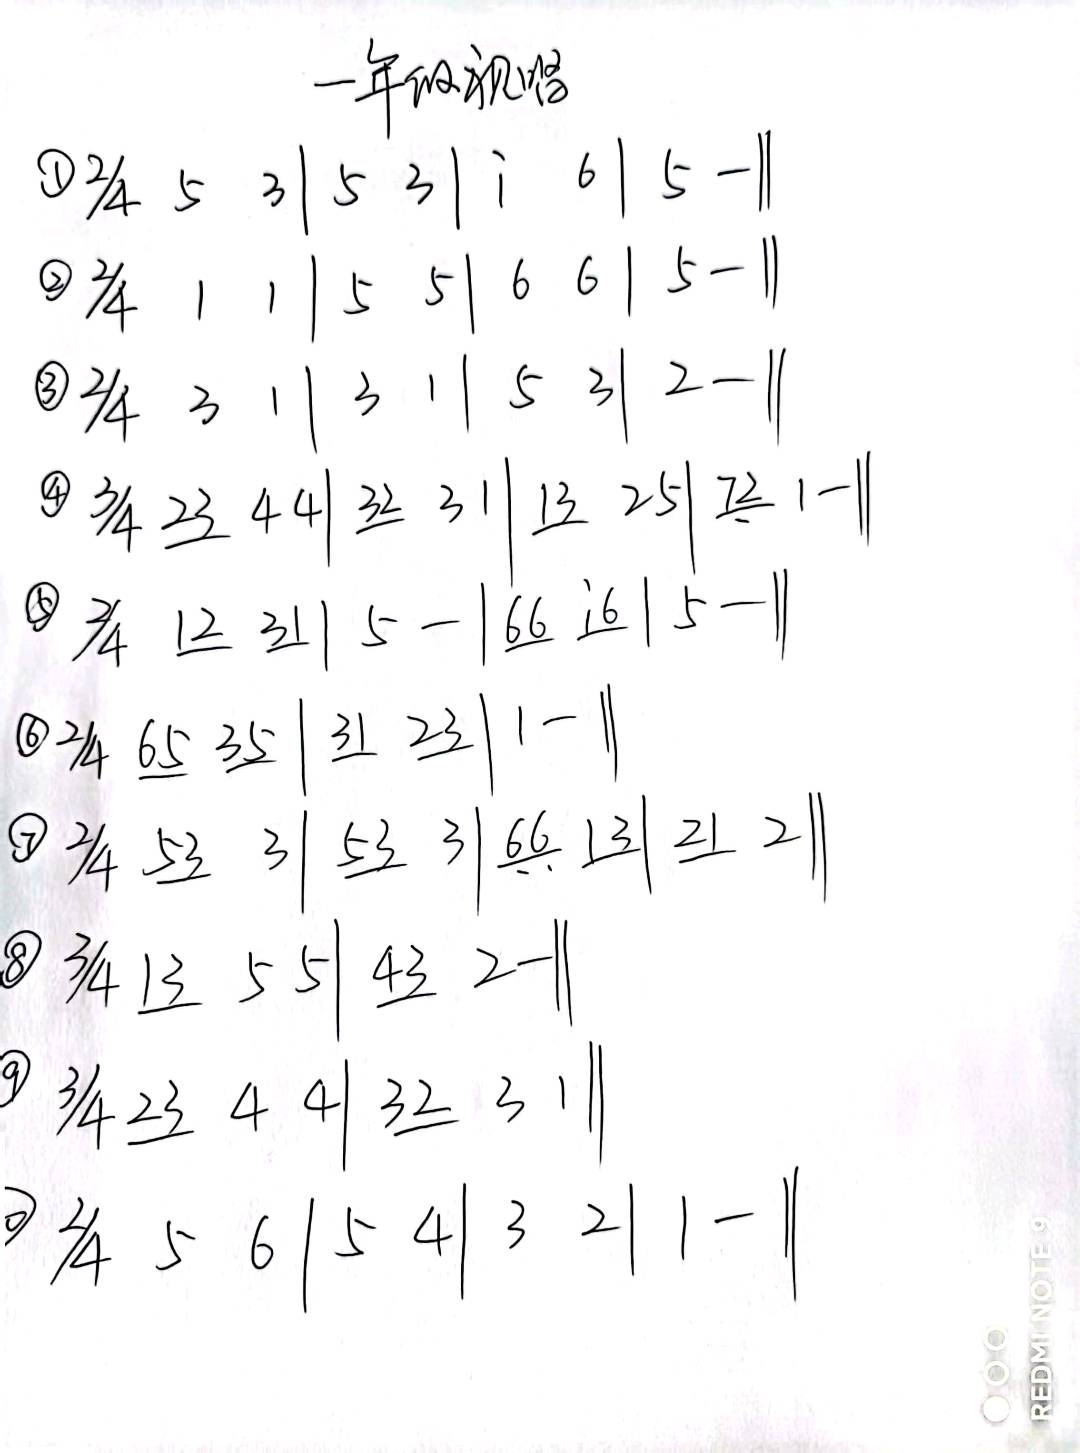 一年级视唱
① 2/4 5 3 | 5 3 | i 6 | 5 - ‖
② 2/4 1 1 | 5 5 | 6 6 | 5 - ‖
③ 2/4 3 1 | 3 1 | 5 3 | 2 - ‖
④ 3/4 23 4 4 | 32 3 1 | 13 2 5 | 7̣2 1 - ‖
⑤ 2/4 12 31 | 5 - | 66 i6 | 5 - ‖
⑥ 2/4 65 35 | 31 23 | 1 - ‖
⑦ 2/4 53 3 | 53 3 | 6̣6̣ 13 | 21 2 ‖
⑧ 3/4 13 5 5 | 43 2 - ‖
⑨ 3/4 23 4 4 | 32 3 1 ‖
⑩ 2/4 5 6 | 5 4 | 3 2 | 1 - ‖
REDMI NOTE 9